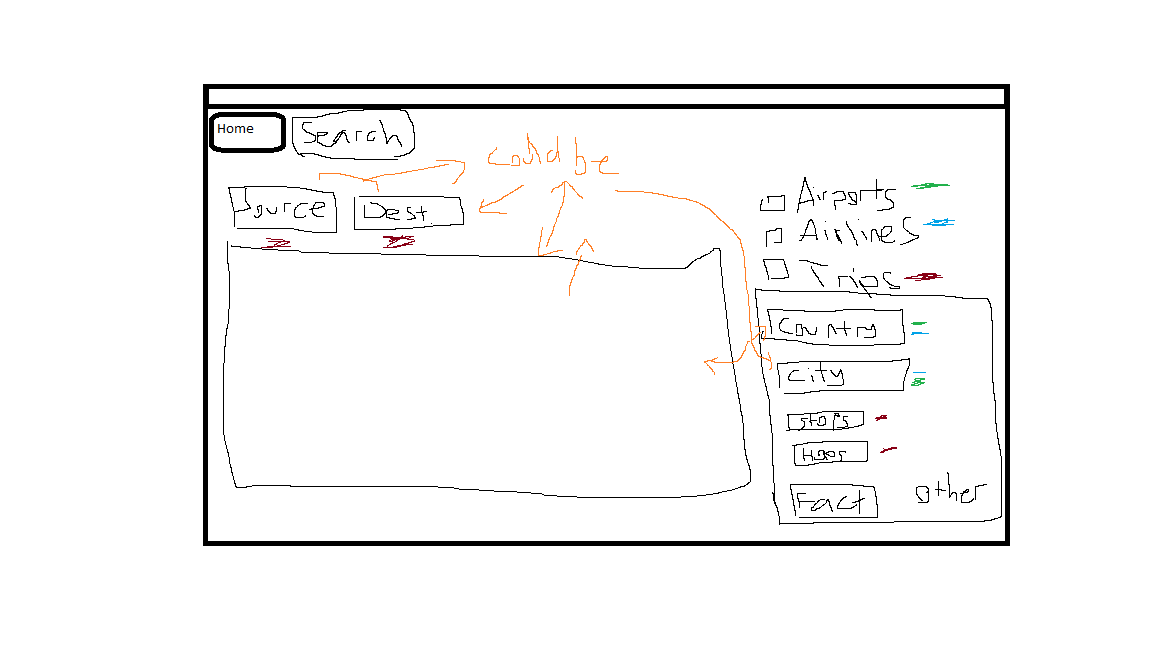 Home
Search
could be
Source
Dest.
Airports
Airlines
Trips
Country
City
stops
Hops
Fact
other